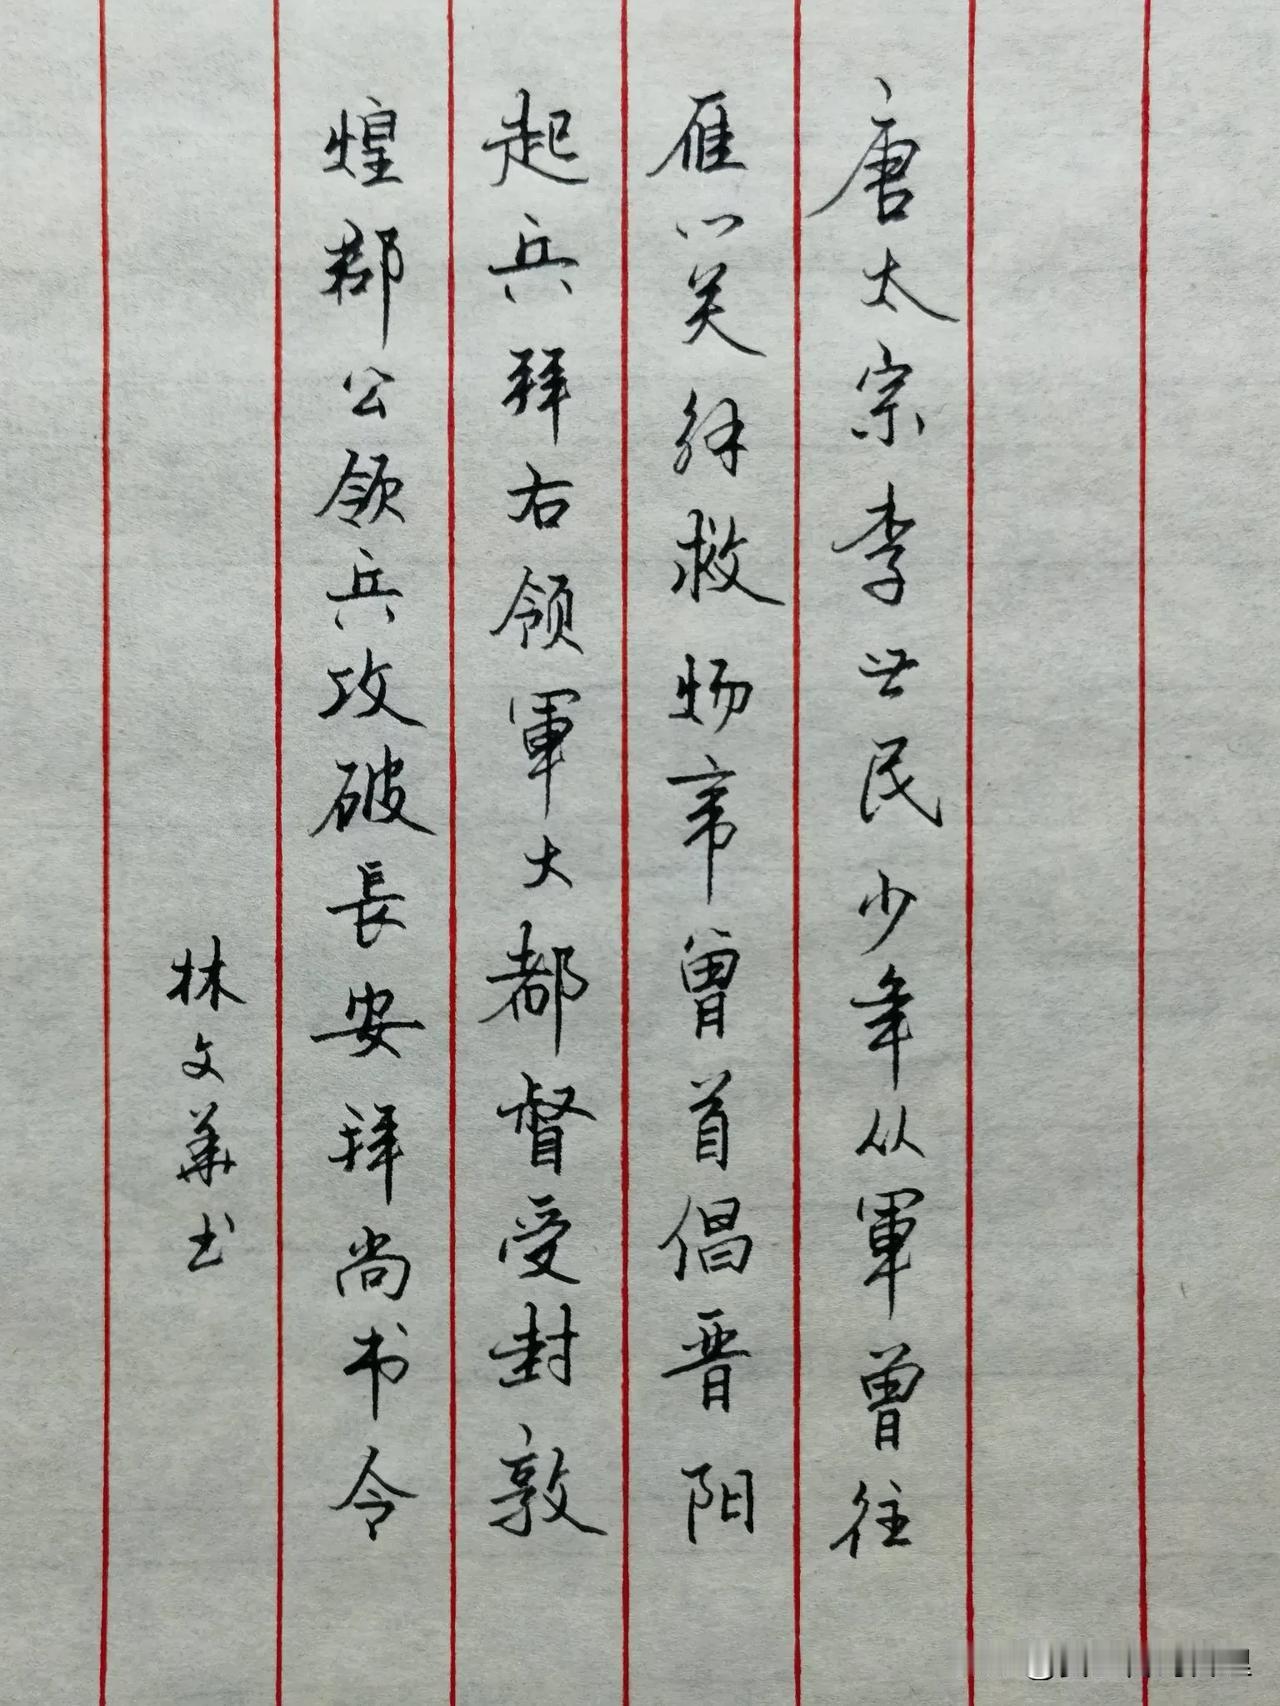 唐太宗李世民少年从軍曾往
雁门关解救炀帝曾首倡晋阳
起兵拜右领軍大都督受封敦
煌郡公领兵攻破長安拜尚书令
林文華书